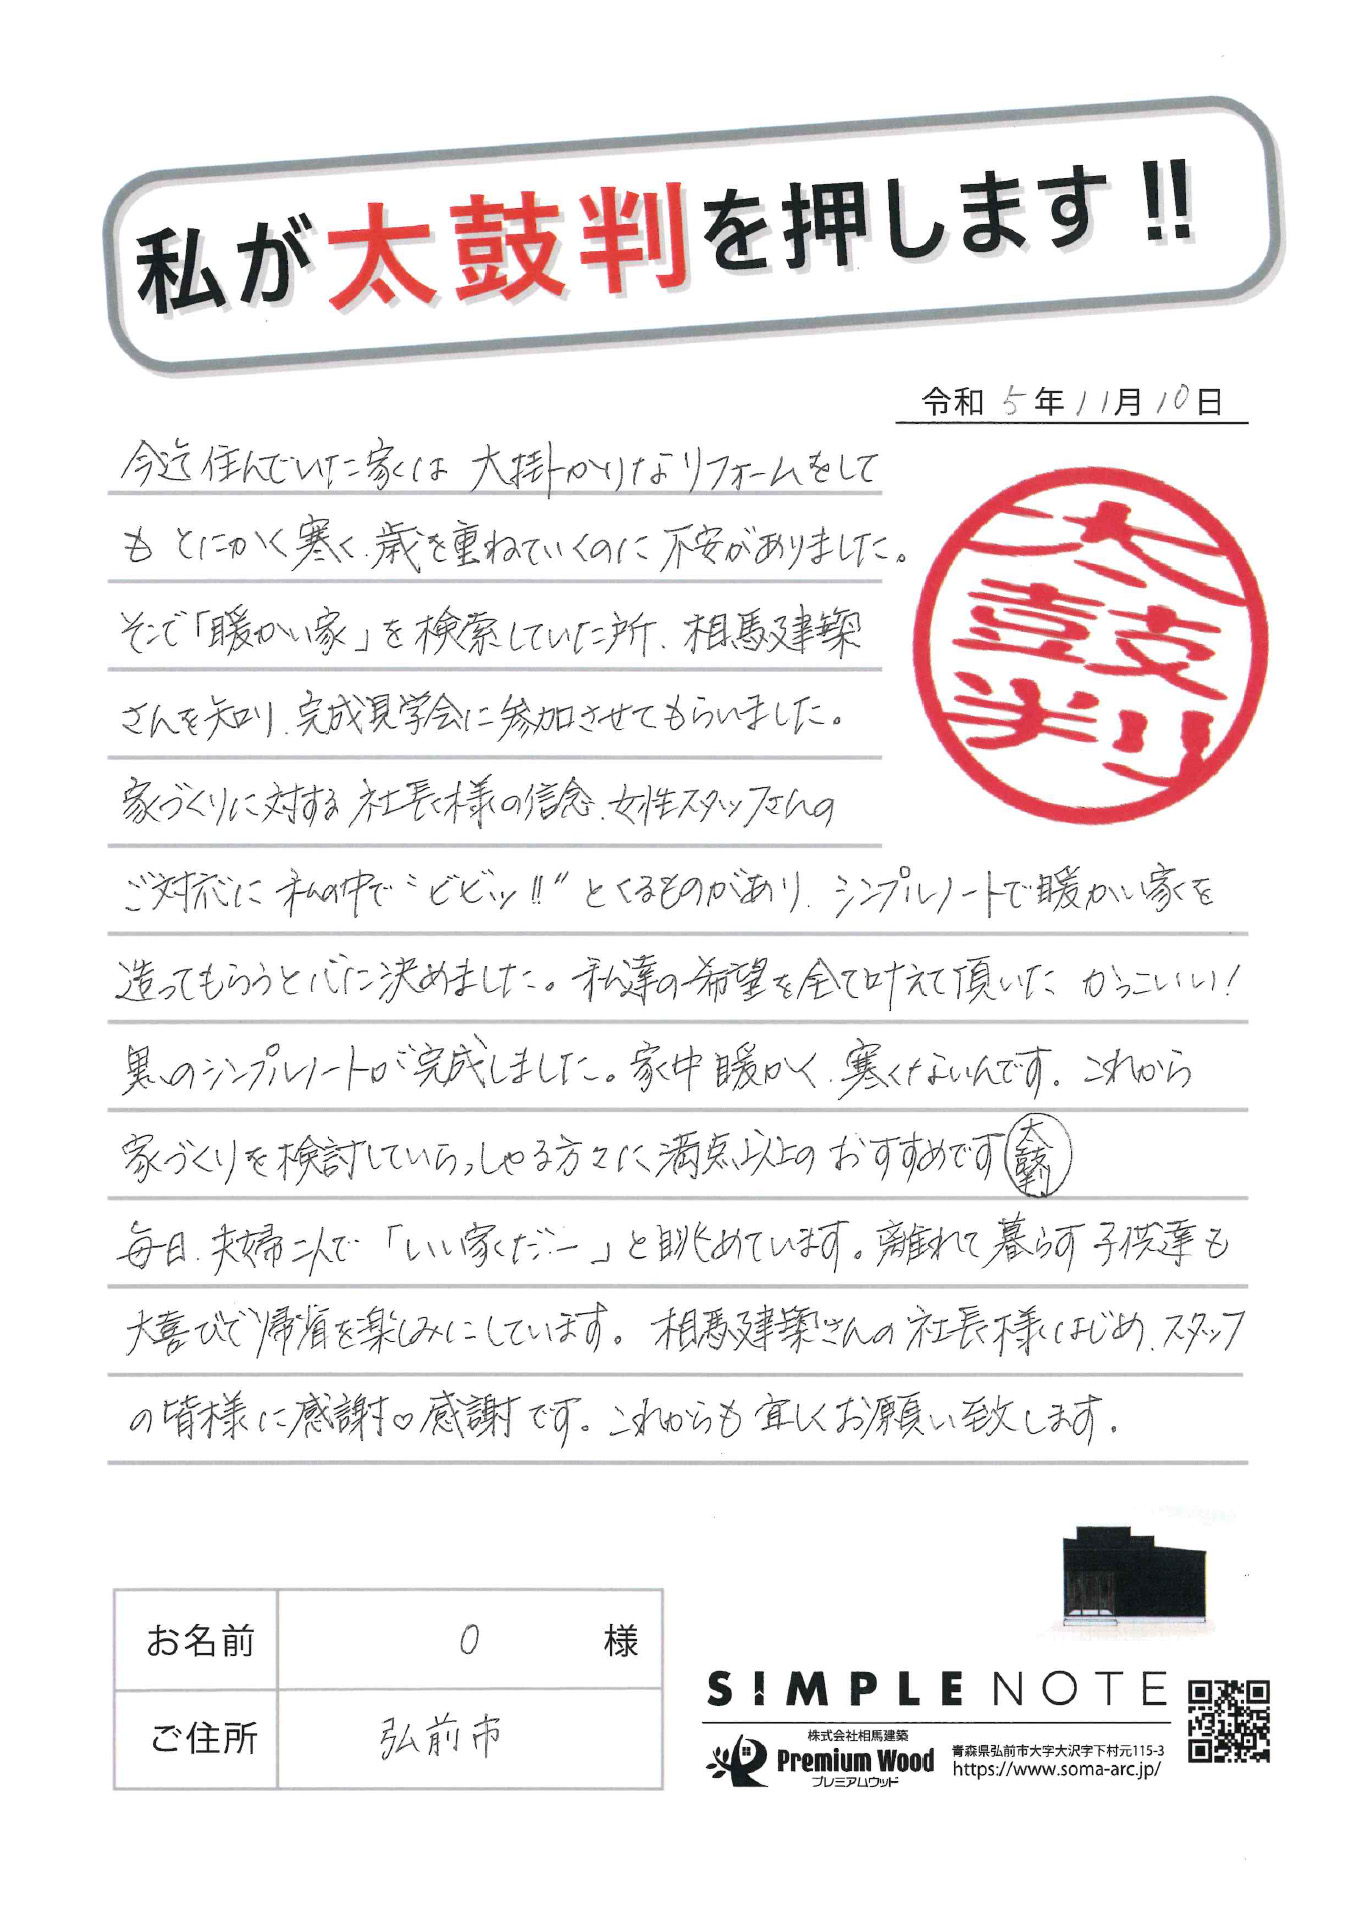 私が太鼓判を押します!!
令和 5 年 11 月 10 日
今迄住んでいた家は 大掛かりなリフォームをして
も とにかく寒く、歳を重ねていくのに 不安がありました。
そこで「暖かい家」を検索していた所、相馬建築
さんを知り、完成見学会に参加させてもらいました。
家づくりに対する 社長様の信念、女性スタッフさんの
ご対応に 私の中で “ビビッ!!” とくるものがあり、シンプルノートで暖かい家を
造ってもらうと心に決めました。私達の希望を全て叶えて頂いた かっこいい!
黒いのシンプルノートが完成しました。家中暖かく、寒くないんです。これから
家づくりを検討していらっしゃる方々に 満点以上の おすすめです 太鼓判
毎日、夫婦二人で「いい家だな〜」と眺めています。離れて暮らす子供達も
大喜びで帰省を楽しみにしています。相馬建築さんの 社長様はじめ、スタッフ
の皆様に感謝♡感謝です。これからも宜しくお願い致します。
太鼓判
お名前 O 様
ご住所 弘前市
SIMPLE NOTE
株式会社相馬建築
Premium Wood
プレミアムウッド
青森県弘前市大字大沢字下村元115-3
https://www.soma-arc.jp/